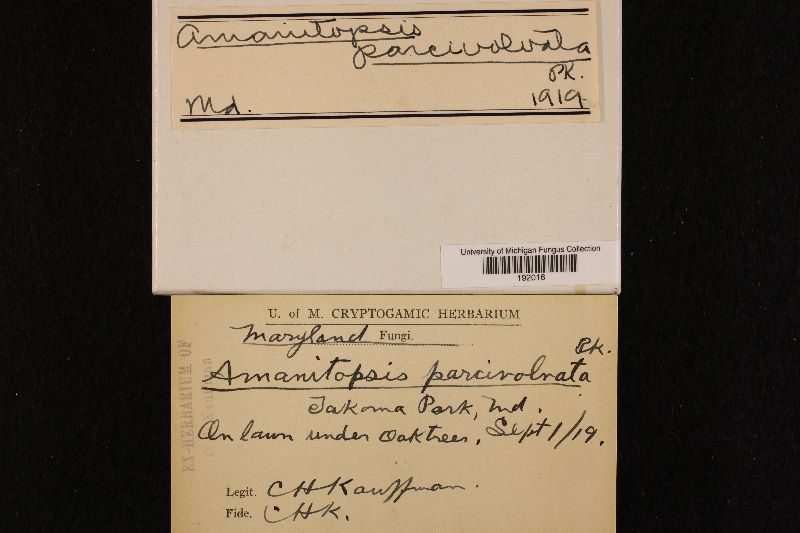 Amanitopsis
parcivolvata
PK.
Md. 1919
University of Michigan Fungus Collection
192016
U. of M. CRYPTOGAMIC HERBARIUM
Maryland Fungi.
Amanitopsis parcivolvata PK.
Takoma Park, Md.
On lawn under oak trees. Sept 1/19.
EX-HERBARIUM OF
Legit. CHKauffman.
Fide. CHK.